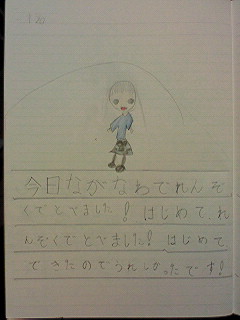 今日ながなわでれんぞ
くでとべました！はじめて、れ
んぞくでとべました！はじめて
できたのでうれしかったです！